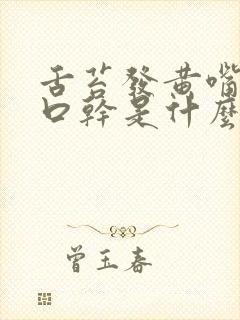 舌苔發黃嘴
口幹是什麼
曾玉春